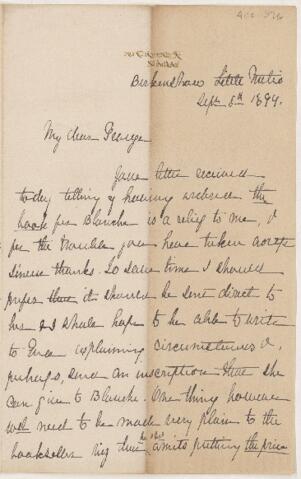 Birkenshaw Little Metis
Sept. 8th 1894.
My dear George
Your letter received
to-day telling of having ordered the
book for Blanche is a relief to me, &
for the trouble you have taken accept
sincere thanks. To save time I should
prefer that it should be sent direct to
her as I shall hope to be able to write
to explaining circumstances &
perhaps, send an inscription that she
can give to Blanche. One thing however
will need to be made very plain to the
bookseller viz that he omits putting the price